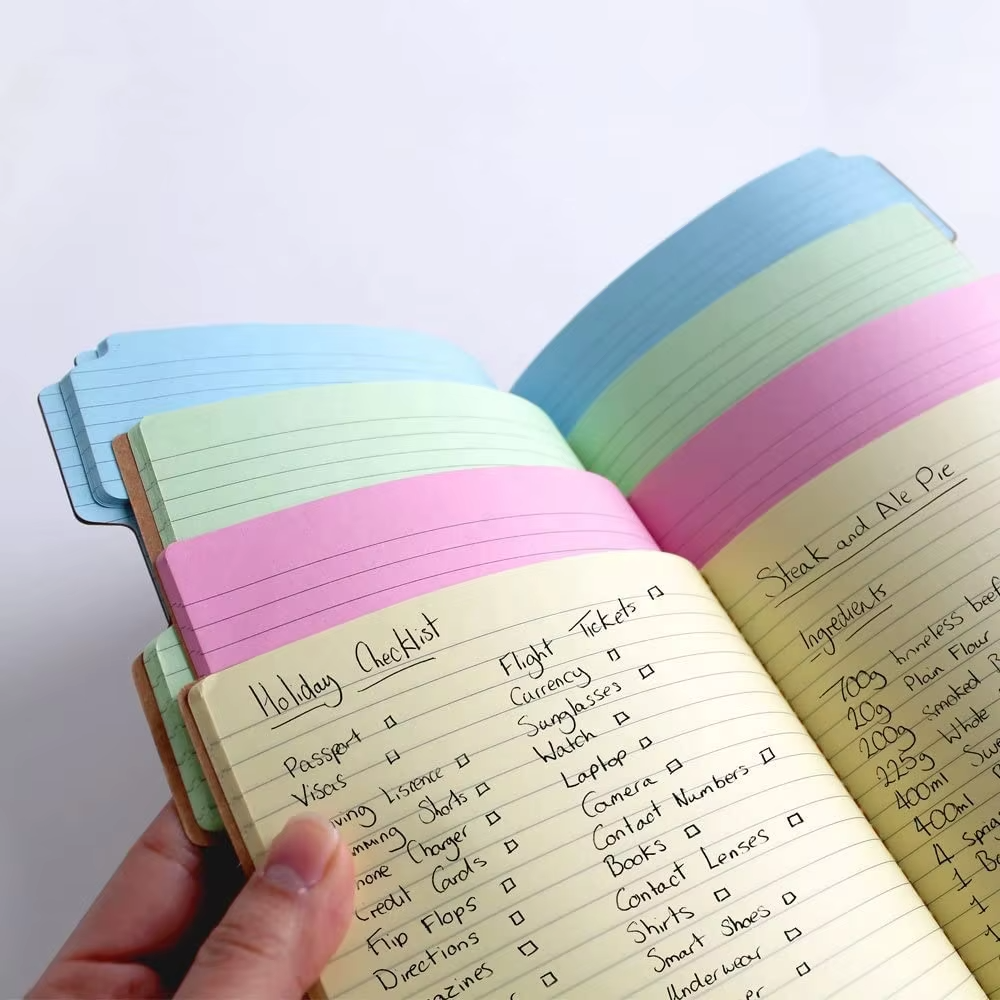 Holiday Checklist
Passport
Visas
ving Liscence
mming Shorts
hone Charger
Credit Cards
Flip Flops
Directions
azines
Flight Tickets
Currency
Sunglasses
Watch
Laptop
Camera
Contact Numbers
Books
Contact Lenses
Shirts
Smart Shoes
Underwear
er
Steak and Ale Pie
Ingredients
700g
20g Plain Flour
200g Smoked B
225g Whole
400ml
400ml
4
1
1
1